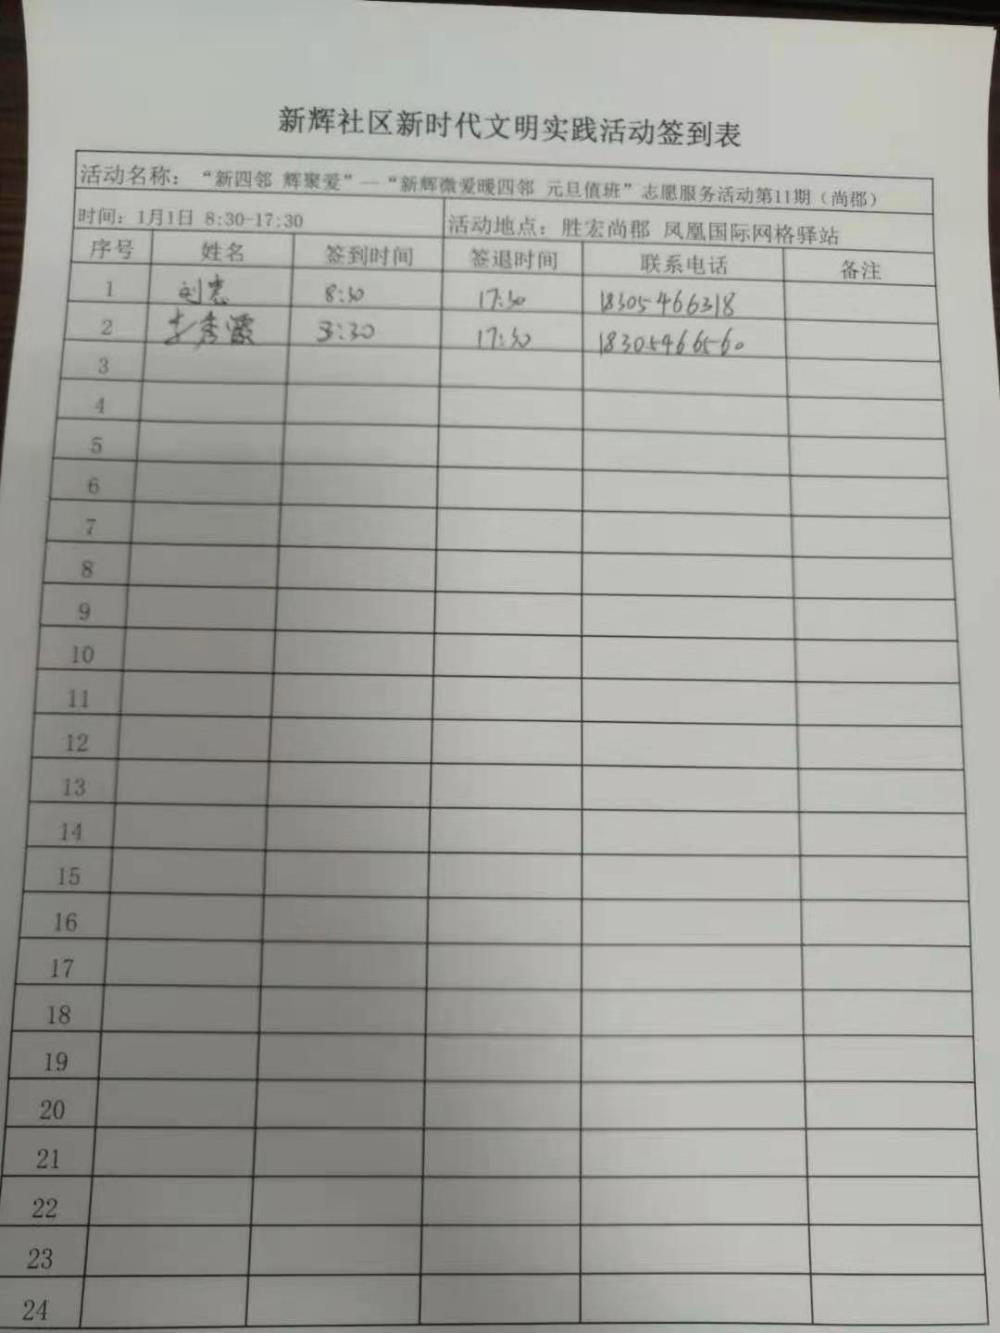 新辉社区新时代文明实践活动签到表
活动名称：“新四邻 辉聚爱”—“新辉微爱暖四邻 元旦值班”志愿服务活动第11期（尚郡）
时间：1月1日 8:30-17:30 活动地点：胜宏尚郡 凤凰国际网格驿站
序号 姓名 签到时间 签退时间 联系电话 备注
1 8:30 17:30 18305466318
2 8:30 17:30 18305466560
3
4
5
6
7
8
9
10
11
12
13
14
15
16
17
18
19
20
21
22
23
24